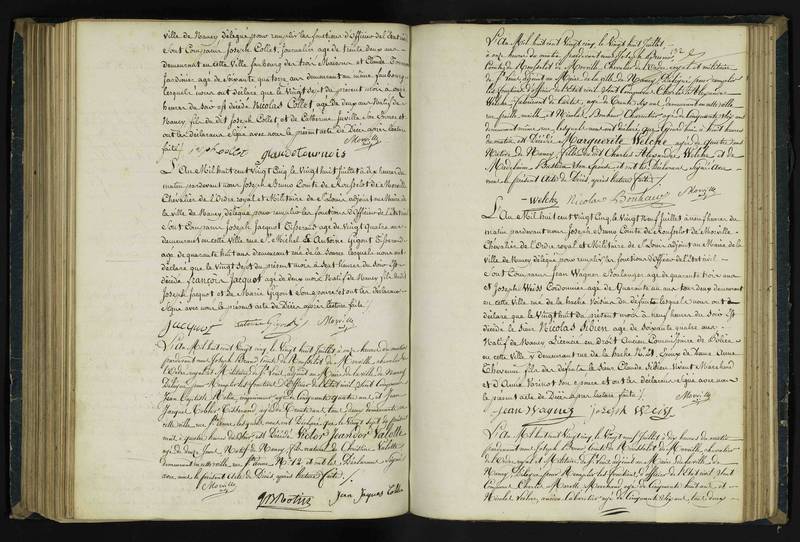 ville de Nancy délégué pour remplir les fonctions d'Officier de l'État civil
Sont Comparus Joseph Collet, Journalier agé de trente deux ans
demeurant en cette Ville faubourg des trois Maisons et Claude
Jardinier agé de Soixante quatorze ans demeurant au même faubourg
lesquels nous ont déclaré que le Vingt Sept du présent mois à onze
heures du Soir est décédé Nicolas Collet agé de deux ans Natif de
Nancy, fils du dit Joseph Collet et de Catherine
ont les déclarans Signé avec nous le présent acte de Décès après lecture
faite.
Jsph Collet glaudetournois Morville
L'An Mil huit cent Vingt Cinq le Vingt huit Juillet à dix heures du
matin pardevant nous Joseph Bruno Comte de Rousselot de Morville
Chevalier de l'Ordre royal et Militaire de St Louis adjoint au Maire de
la ville de Nancy délégué pour remplir les fonctions d'Officier de l'État civil
Sont Comparus Joseph Jacquot Tisserand agé de Vingt Quatre ans
demeurant en cette Ville rue St Michel & Antoine Gigout Tisserand
agé de quarante huit ans demeurant rue de la Source lesquels nous ont
déclaré que le Vingt Sept du présent mois à Sept heures du Soir est
décédé François Jacquot agé de deux mois Natif de Nancy fils dudit
Joseph Jacquot et de Marie Gigout Son épouse et ont les déclarans
Signé avec nous le présent acte de Décès après lecture faite.
Jacquot Antoine Gigout Morville
L'An Mil huit cent vingt cinq, le Vingt huit Juillet à onze heures du matin
pardevant nous Joseph Bruno Comte de Rousselot de Morville, chevalier de
l'Ordre royal et Militaire de St Louis, adjoint au Maire de la ville de Nancy
Délégué pour Remplir les fonctions d'Officier de l'État civil, Sont Comparus
Jean Baptiste Motin, agé de Cinquante quatre ans, et Jean
Jacques Collin agé de trente ans, tous deux demeurans en
cette ville, lesquels nous ont déclaré que le Vingt Sept du présent
mois à quatre heures du Soir, est Décédé Victor Jean dor Valette
agé de douze Jours, Natif de Nancy, fils naturel de Christine Valette
demeurant en cette ville, No 12 et ont les Déclarans Signé
avec nous le présent Acte de Décès après lecture faite.
Morville
JB Motin Jean Jacques Collin
L'An Mil huit cent Vingt cinq, le Vingt huit Juillet
à onze heures du matin pardevant nous Joseph Bruno
Comte de Rousselot de Morville, Chevalier de l'Ordre royal et militaire
de St Louis, adjoint au Maire de la ville de Nancy, Délégué pour remplir
les fonctions d'officier de l'État civil, Sont Comparus Charles Alexandre
Welche, fabricant de Cartes, agé de trente ans, demeurant en cette ville
et Nicolas Bonhaux Charcutier agé de Cinquante
demeurant même rue, lesquels nous ont déclaré que à huit heures
du matin est Décédée Marguerite Welche agée de quatre ans
Native de Nancy, fille du dit Charles Alexandre Welche et de
Madelaine Son épouse, et ont les Déclarans Signé avec
nous le présent Acte de Décès après lecture faite.
Welche Nicolas Bonhaux Morville
L'An Mil huit cent Vingt Cinq le Vingt Neuf Juillet à neuf heures du
matin pardevant nous Joseph Bruno Comte de Rousselot de Morville
Chevalier de l'Ordre royal et Militaire de St Louis adjoint au Maire de la
ville de Nancy délégué pour remplir les fonctions d'Officier de l'État civil
Sont Comparus Jean Wagner Boulanger agé de quarante trois ans
et Joseph Weiss Cordonnier agé de Quarante un ans tous deux demeurant
en cette Ville rue de la hache Voisins du défunt lesquels nous ont
déclaré que le Vingt huit du présent mois à neuf heures du Soir est
décédé le Sieur Nicolas Sibien agé de Soixante quatre ans
Natif de Nancy Licencié en Droit Ancien Commissaire de Police
en cette Ville y demeurant rue de la hache No 21, Epoux de Dame Anne
Thévenin fils des défunts le Sieur Claude Sibien Vivant Marchand
et d'Anne Son épouse et ont les déclarans Signé avec nous
le présent acte de Décès après lecture faite.
Jean Wagner Joseph Weiss Morville
L'An Mil huit cent Vingt cinq, le Vingt neuf Juillet à dix heures du matin
pardevant nous Joseph Bruno, Comte de Rousselot de Morville, chevalier
de l'Ordre royal et Militaire de St Louis, adjoint au Maire de la ville de
Nancy, Délégué pour Remplir les fonctions d'officier de l'État civil, Sont
Comparus Charles Marchand agé de Cinquante huit ans, et
Nicolas ancien agé de Cinquante ans, tous deux